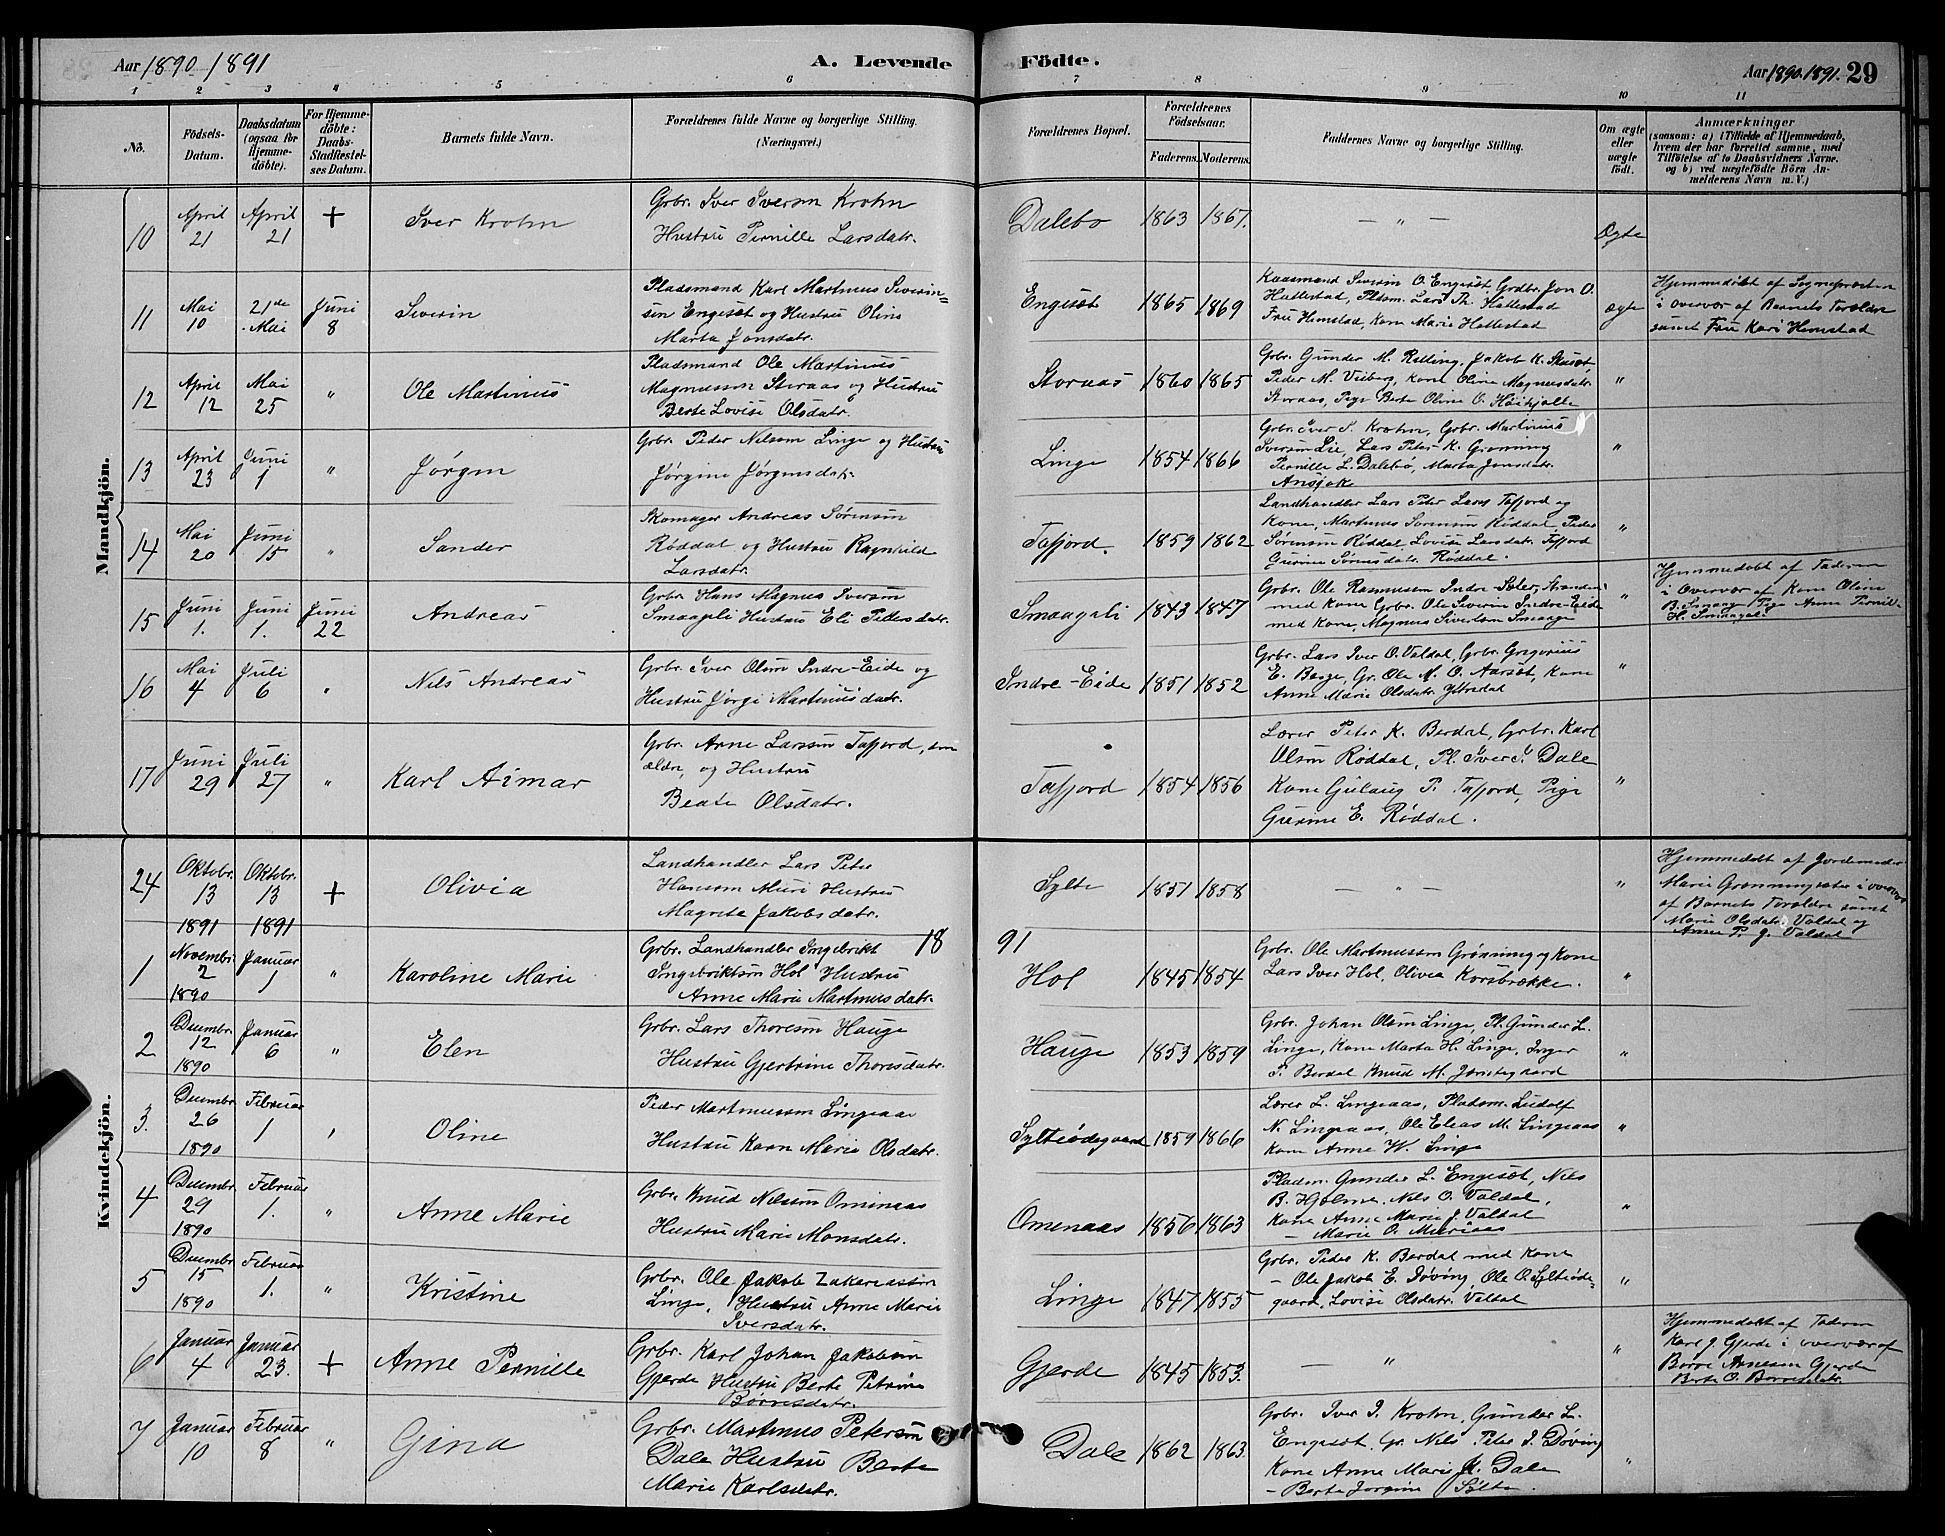 Aar 1890 1891
A. Levende Födte.
Aar 1890. 1891. 29
1 2 3 4 5 6 7 8 9 10 11
No.
Födsels-Datum.
Daabsdatum (ogsaa for Hjemmedöbte).
For Hjemmedöbte: Daabs-Stadfæstelses Datum.
Barnets fulde Navn.
Forældrenes fulde Navne og borgerlige Stilling.
(Næringsvei.)
Forældrenes Bopæl.
Forældrenes Födselsaar.
Faderens. Moderens.
Faddernes Navne og borgerlige Stilling.
Om ægte eller uægte födt.
Anmærkninger
(saasom: a) i Tilfælde af Hjemmedaab, hvem der har forrettet samme, med Tilföielse af to Daabsvidners Navne. og b) ved uægtefödte Börn Anmelderens Navn m. V.)
Mandkjön.
10 April 21 April 21 + Iver Krohn
Grbr. Iver Iversen Krohn
Hustru Pernille Larsdatr.
Dalebo 1863 1867. — " — Ægte
11 Mai 10 21de Mai Juni 8 Severin
Pladsmand Karl Martinus Severin=
sen Engesæt og Hustru Oline
Marta Jonsdatr.
Engesæt 1865 1869
Kaasmand Severin O. Engesæt, Grdbr. Jon O.
Hattestad, Pldsm. Lars Th. Hattestad
Fru Hemstad, Kone Marie Hattestad
ægte
Hjemmedöbt af Sognepræsten
i overvær af Barnets Forældre
samt Fru Kari Hemstad
12 April 12 Mai 25 " Ole Martinus
Pladsmand Ole Martinus
Magnussen Storaas og Hustru
Berte Lovise Olsdatr.
Storaas 1860 1865
Grbr. Gunder M. Relling, Jakob K.
Peder M. Veiberg, Kone Oline Magnusdatr.
Storaas, Pige Berte Oline O.
"
13 April 23 Juni 1 " Jørgen
Grbr. Peder Nilssen Linge og Hustru
Jørgine Jørgensdatr.
Linge 1854 1866
Grbr. Iver S. Krohn, Grbr. Martinus
Iversen Lie, Lars Peter K. Grønning
Pernille L. Dalebø, Marta Jonsdatr.
"
14 Mai 20 Juni 15 " Sander
Skomager Andreas Sørensen
Røddal og Hustru Ragnhild
Larsdatr.
Tafjord. 1859 1862
Landhandler Lars Peter Larss Tafjord og
Kone, Martinus Sørensen Røddal, Peder
Sørensen Røddal Lovise Larsdatr. Tafjord
Gurine Sørensdatr. Røddal.
"
15 Juni 1. Juni 1. Juni 22 Andreas
Grbr. Hans Magnus Iversen
Smaageli Hustru Eli Pettersdatr.
Smaageli 1843 1847
Grbr. Ole Rasmussen Indre
med Kone Grbr. Ole Severin Indre-Eide
med Kone, Magnus Sivertsen Smaage
"
Hjemmedöbt af Faderen
i Overvær af Kone Oline
B. Smaage Pige Anne Pernil-
H. Smaageli
16 Mai 4 Juli 6 " Nils Andreas
Grbr. Iver Olsen Indre-Eide og
Hustru Jørgi Martinusdatr.
Indre-Eide 1851 1852
Grbr. Lars Iver O. Valdal, Grbr. Gregorius
E. Berge, Gr. Ole M. O. Aarsæt, Kone
Anne Marie Olsdatr.
"
17 Juni 29 Juli 27 " Karl Aimar
Grbr. Arne Larssen Tafjord, den
ældre, og Hustru
Beate Olsdatr.
Tafjord 1854 1856
Lærer Peter K. Berdal, Grbr. Karl
Olsen Røddal, Pl. Iver I. Dale
Kone Gulaug P. Tafjord, Pige
Gurine E. Røddal.
"
Kvindekjön.
24 Oktobr. 13 Oktobr. 13 + Olivia
Landhandler Lars Peter
Hansen Muri Hustru
Magrete Jakobsdatr.
Sylte 1851 1858 — " — "
Hjemmedöbt af Jordemoder
Marie Grønningsæter i overvær
af Barnets Forældre samt
Marie Olsdatr. Valdal og
Anne P. J. Valdal
1891 1891
1891
1 Novembr. 2 1890 Januar 1 " Karoline Marie
Grbr. Landhandler Ingebrikt
Ingebriktsen Hol Hustru
Anne Marie Martinusdatr.
Hol 1845 1854
Grbr. Ole Martinussen Grønning og Kone
Lars Iver Hol, Olivia Korsbrække.
"
2 Decembr. 12 1890 Januar 6 " Elen
Grbr. Lars Thoresen Hauge
Hustru Gjertrine Thoresdatr.
Hauge 1853 1859
Grbr. Johan Olsen Linge, Pl. Gunder L.
Linge, Kone Marta H. Linge, Inger
P. Berdal Knud M.
"
3. Decembr. 26 1890 Februar 1 " Oline
Peder Martinussen Lingeaas
Hustru Karn Marie Olsdatr.
Sylteødegaard 1859 1866
Lærer L. Lingeaas, Pladsm. Ludolf
N. Lingeaas, Ole Elias M. Lingeaas
Kone Anne W. Linge
"
4 Decembr. 29 1890 Februar 1. " Anne Marie
Grbr. Knud Nilssen Omenaas
Hustru Marie Monsdatr.
Omenaas 1856 1863
Pladsm. Gunder L. Engesæt, Nils
B. Hjelme, Nils O. Valdal,
Kone Anne Marie J. Valdal
— Marie O.
"
5 Decembr. 15 1890 Februar 1. " Kristine
Grbr. Ole Jakob Zakariassen
Linge, Hustru Anne Marie
Iversdatr.
Linge 1847 1855
Grbr. Peder K. Berdal med Kone
— Ole Jakob E. Døving, Ole O. Sylteøde-
gaard, Lovise Olsdatr. Valdal
"
6 Januar 4 Januar 23. + Anne Pernille
Grbr. Karl Johan Jakobsen
Gjerde Hustru Berte Petrine
Børresdatr.
Gjerde 1845 1853. — " "
Hjemmedöbt af Faderen
Karl J. Gjerde i overvær af
Børre Arnesen Gjerde
Berte O. Børresdatr.
7 Januar 10 Februar 8 " Gina
Grbr. Martinus Petersen
Dale Hustru Berte
Marie Karlsdatr.
Dale 1862 1863
Grbr. Iver I. Krohn, Gunder L.
Engesæt, Gr. Nils Peter J. Døving
Kone Anne Marie M. Dale
— Berte Jørgine Sylte.
"